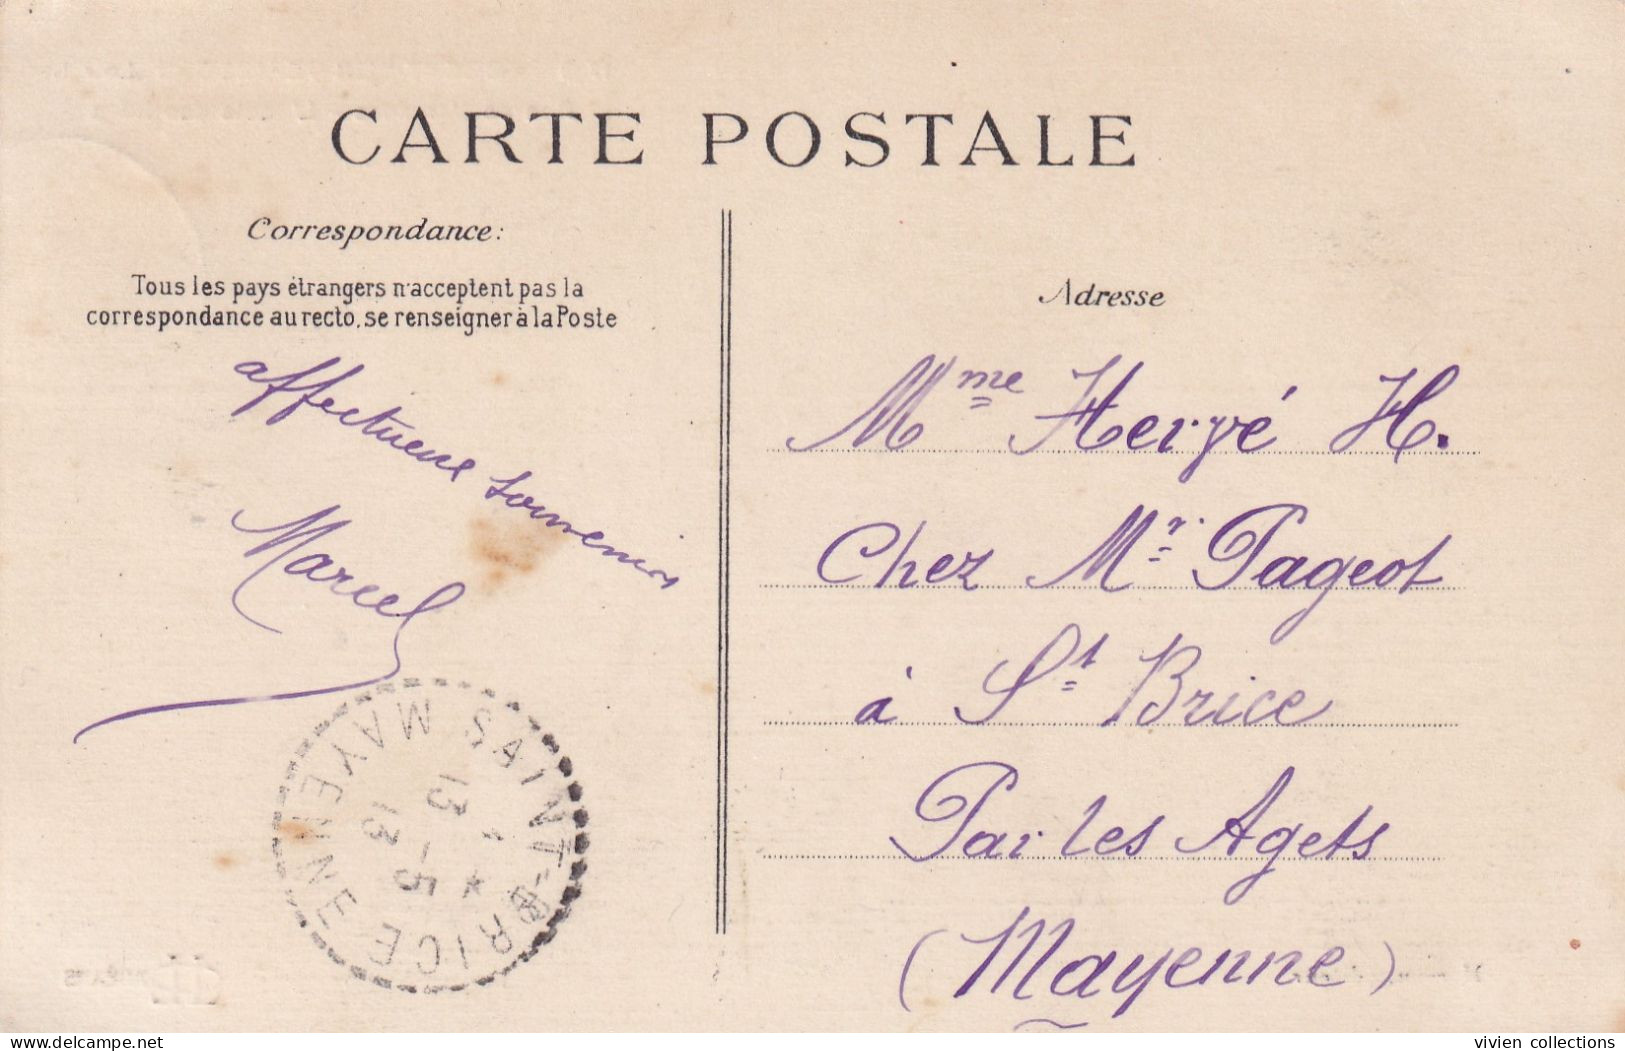 CARTE POSTALE
Correspondance:
Tous les pays étrangers n'acceptent pas la
correspondance au recto, se renseigner à la Poste
affectueux souvenirs
Marcel
Adresse
Mme Hervé H.
Chez Mr Pageot
à St Brice
Par les Agets
(Mayenne)
SAINT-BRICE
MAYENNE
13 - 5
13
vivien collections